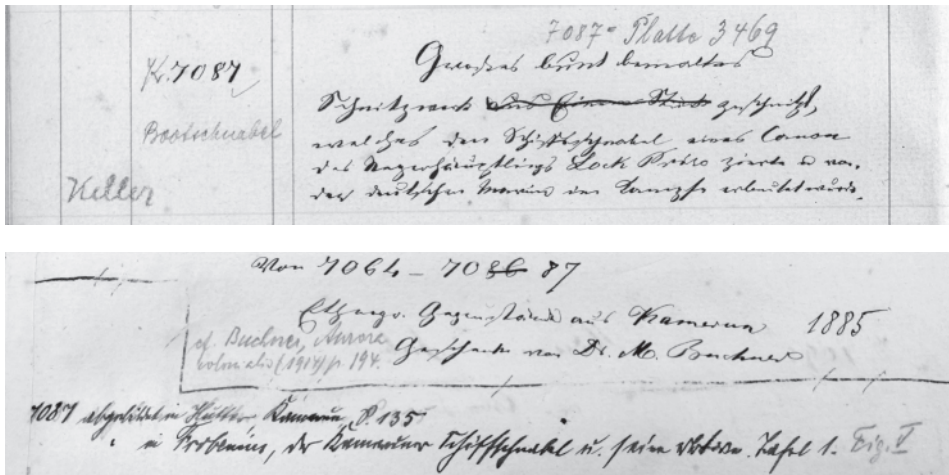 7087 = Platte 3469
K. 7087
Grosses bunt bemaltes
Schnitzwerk aus Einem Stück geschnitzt,
Bootschnabel
welches den Schiffsschnabel eines Canoe
des Negerhäuptlings Lock Priso zierte u. von
Keller
der deutschen Marine im Kampfe erbeutet wurde.
Von 7064 – 7086 87
Ethnogr. Gegenstände aus Kamerun 1885
cf. Buchner, Aurora
colonialis (1914) p. 194.
Geschenk von Dr. M. Buchner
7087 abgebildet in Hutter Kamerun, P. 135
" in Frobenius, der Kameruner Schiffsschnabel u. seine Motive. Tafel 1. Fig. V